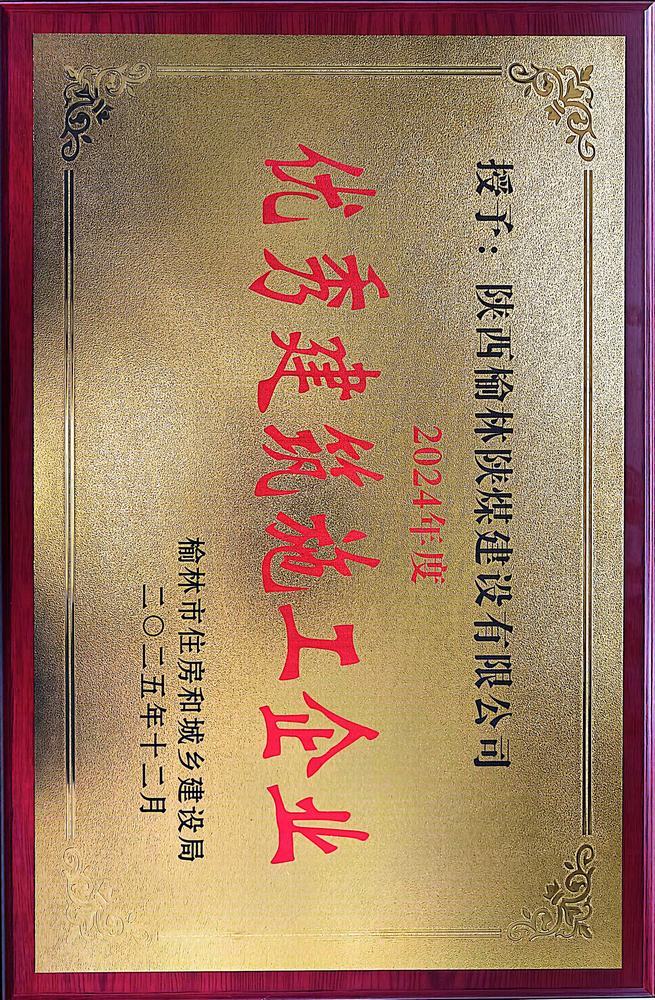 授予：陕西榆林陕煤建设有限公司
2024年度
优秀建筑施工企业
榆林市住房和城乡建设局
二〇二五年十二月